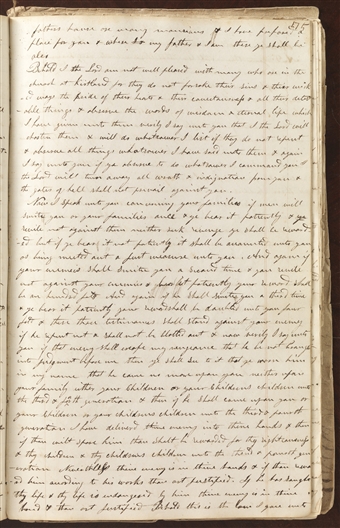 85
fathers house are many mansions & I have prepared a
place for you & where my father & I am there ye shall be
also
Behold I the Lord am not well pleased with many who are in the
church at Kirtland for they do not forsake their sins & their wick
ed ways the pride of their hearts & their covetousness & all their detest
able things & observe the words of wisdom & eternal life which
I have given unto them verily I say unto you that I the Lord will
chasten them & will do whatsoever I list if they do not repent
& observe all things whatsoever I have said unto them & again
I say unto you if ye observe to do whatsoever I command you
I the Lord will turn away all wrath & indignation from you &
the gates of hell shall not prevail against you
Now I speak unto you concerning your families if men will
smite you or your families once & ye bear it patiently &
revile not against them neither seek revenge ye shall be reward
ed but if ye bear it not patiently it shall be accounted unto you
as being meeted out a just measure unto you. And again if
your enemies shall smite you a second time & you revile
not against your enemies & bear it patiently your reward shall
be an hundred fold And again if he shall smite you a third time
& ye bear it patiently your reward shall be doubled unto you four
fold & these three testimonies shall stand against your enemy
if he repent not & shall not be blotted out & now verily I say unto
you if that enemy shall escape my vengeance that he be not brought
into judgment before me then ye shall see to it that ye warn him
in my name that he come no more upon you neither upon
your family either your children or your childrens children unto
the third & fourth generation & then if he shall come upon you or
your children or your childrens children unto the third & fourth
generation I have delivered thine enemy into thine hands & then
if thou wilt spare him thou shalt be rewarded for thy righteousness
& thy children & thy childrens children unto the third & fourth gen
eration Nevertheless thine enemy is in thine hands & if thou rewar
d him according to his works thou art justified if he has sought
thy life & thy life is endangered by him thine enemy is in thine
hand & thou art justified Behold this is the law I gave unto